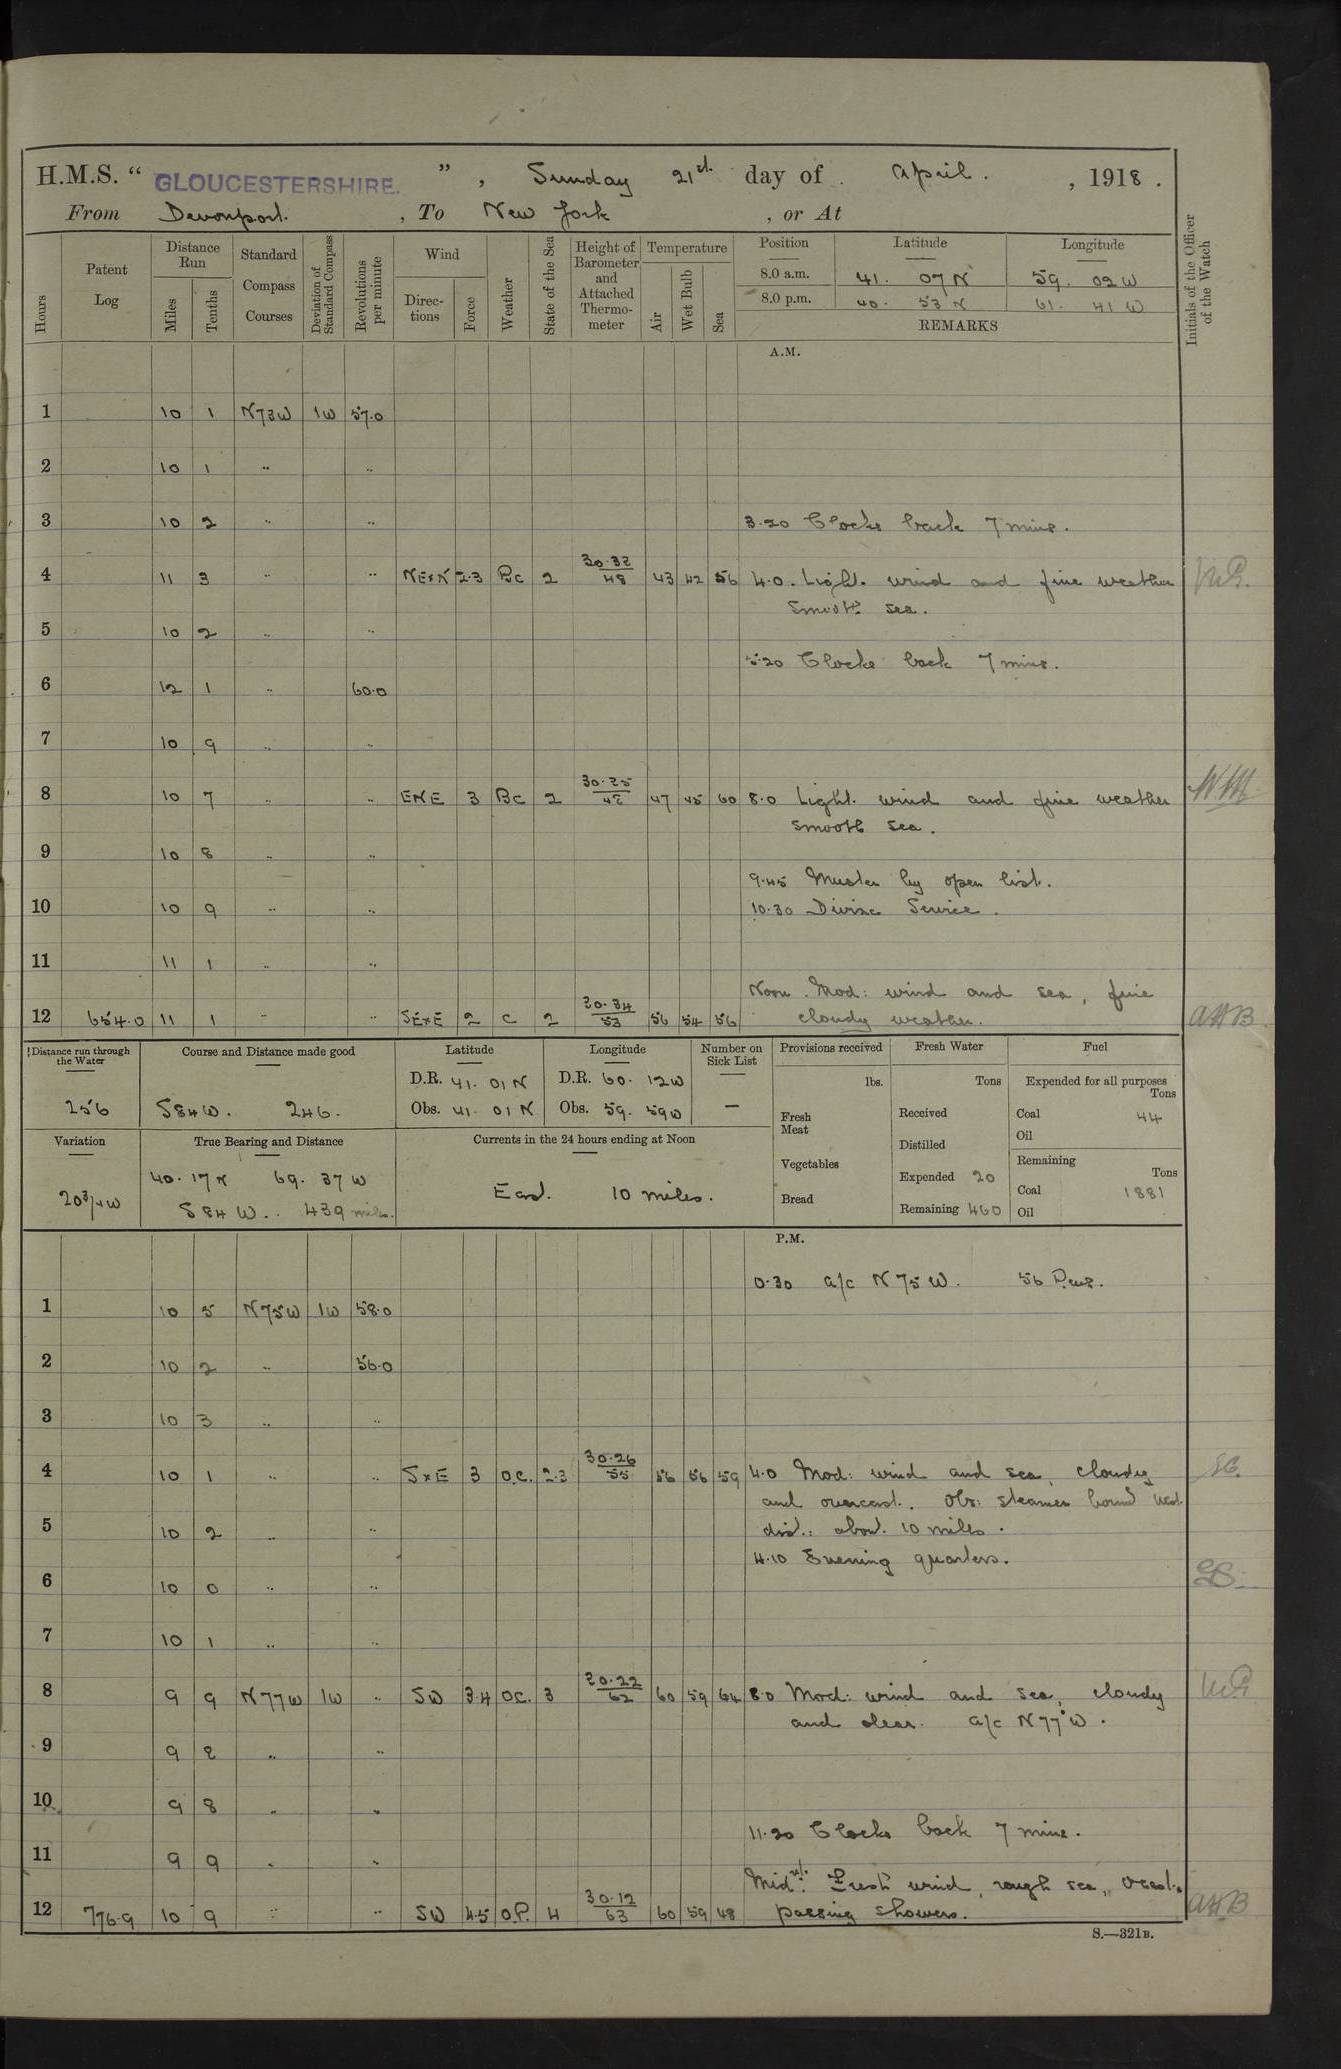 H.M.S. “ GLOUCESTERSHIRE. ” , Sunday 21st day of April . , 1918 .
From Devonport. , To New York , or At
Hours
Patent Log
Distance Run
Miles Tenths
Standard Compass Courses
Deviation of Standard Compass
Revolutions per minute
Wind
Directions Force
Weather
State of the Sea
Height of Barometer and Attached Thermometer
Temperature
Air Wet Bulb Sea
Position Latitude Longitude
8.0 a.m. 41. 07 N 59. 02 W
8.0 p.m. 40. 53 N 61. 41 W
REMARKS
Initials of the Officer of the Watch
A.M.
1 10 1 N73W 1W 57.0
2 10 1 " "
3 10 2 " " 3.20 Clocks back 7 mins.
4 11 3 " " NExN 2.3 Bc 2 30.32/48 43 42 56 4.0. Light. wind and fine weather
smooth sea.
5 10 2 " "
5.20 Clocks back 7 mins.
6 12 1 " 60.0
7 10 9 " "
8 10 7 " " ENE 3 Bc 2 30.25/42 47 45 60 8.0 Light. wind and fine weather W.M.
smooth sea.
9 10 8 " "
9.45 Muster by open list.
10 10 9 " " 10.30 Divine Service.
11 11 1 " "
Noon. Mod: wind and sea, fine
12 654.0 11 1 " " SExE 2 C 2 30.34/53 56 54 56 cloudy weather. AHB
Distance run through the Water
256
Course and Distance made good
S84W. 246.
Latitude
D.R. 41. 01 N
Obs. 41. 01 N
Longitude
D.R. 60. 12W
Obs. 59. 59W
Number on Sick List
—
Provisions received
lbs.
Fresh Meat
Vegetables
Bread
Fresh Water
Tons
Received
Distilled
Expended 20
Remaining 460
Fuel
Expended for all purposes
Tons
Coal 44
Oil
Remaining
Tons
Coal 1881
Oil
Variation
20¾W
True Bearing and Distance
40. 17 N 69. 37 W
S 84 W.. 439 miles.
Currents in the 24 hours ending at Noon
East. 10 miles.
P.M.
0.30 a/c N 75 W. 56 Revs.
1 10 5 N75W 1W 58.0
2 10 2 " 56.0
3 10 3 " "
4 10 1 " " SxE 3 O.C. 2.3 30.26/55 56 56 59 4.0 Mod: wind and sea, cloudy
and overcast. Obs: steamer bound West
5 10 2 " " dist.: about 10 miles.
4.10 Evening quarters.
6 10 0 " "
7 10 1 " "
8 9 9 N77W 1W " SW 3.4 OC. 3 30.22/62 60 59 64 8.0 Mod: wind and sea, cloudy
and clear. a/c N77°W.
9 9 2 " "
10 9 8 " "
11.20 Clocks back 7 mins.
11 9 9 " "
Midnt. Fresh wind, rough sea, occasl.
12 776.9 10 9 " " SW 4.5 O.P. 4 30.12/63 60 59 48 passing showers. AHB
S.—321B.